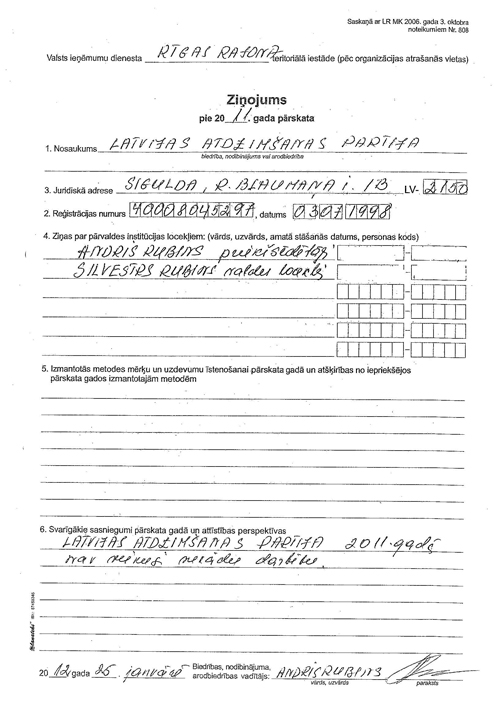 Saskaņā ar LR MK 2006. gada 3. oktobra
noteikumiem Nr. 808
Valsts ieņēmumu dienesta RĪGAS RAJONA teritoriālā iestāde (pēc organizācijas atrašanās vietas)
Ziņojums
pie 2011. gada pārskata
1. Nosaukums LATVIJAS ATDZIMŠANAS PARTIJA
biedrība, nodibinājums vai arodbiedrība
3. Juridiskā adrese SIGULDA, R. BLAUMAŅA i. 1B LV- 2150
2. Reģistrācijas numurs 40008045297, datums 03071998
4. Ziņas par pārvaldes institūcijas locekļiem: (vārds, uzvārds, amatā stāšanās datums, personas kods)
ANDRIS RUBINS priekšsēdētājs
SILVESTRS RUBINS valdes loceklis
5. Izmantotās metodes mērķu un uzdevumu īstenošanai pārskata gadā un atšķirības no iepriekšējos
pārskata gados izmantotajām metodēm
6. Svarīgākie sasniegumi pārskata gadā un attīstības perspektīvas
LATVIJAS ATDZIMŠANAS PARTIJA 2011. gadā
nav veikusi nekādu darbību.
2012 gada 25. janvārī Biedrības, nodibinājuma,
arodbiedrības vadītājs: ANDRIS RUBINS
vārds, uzvārds paraksts